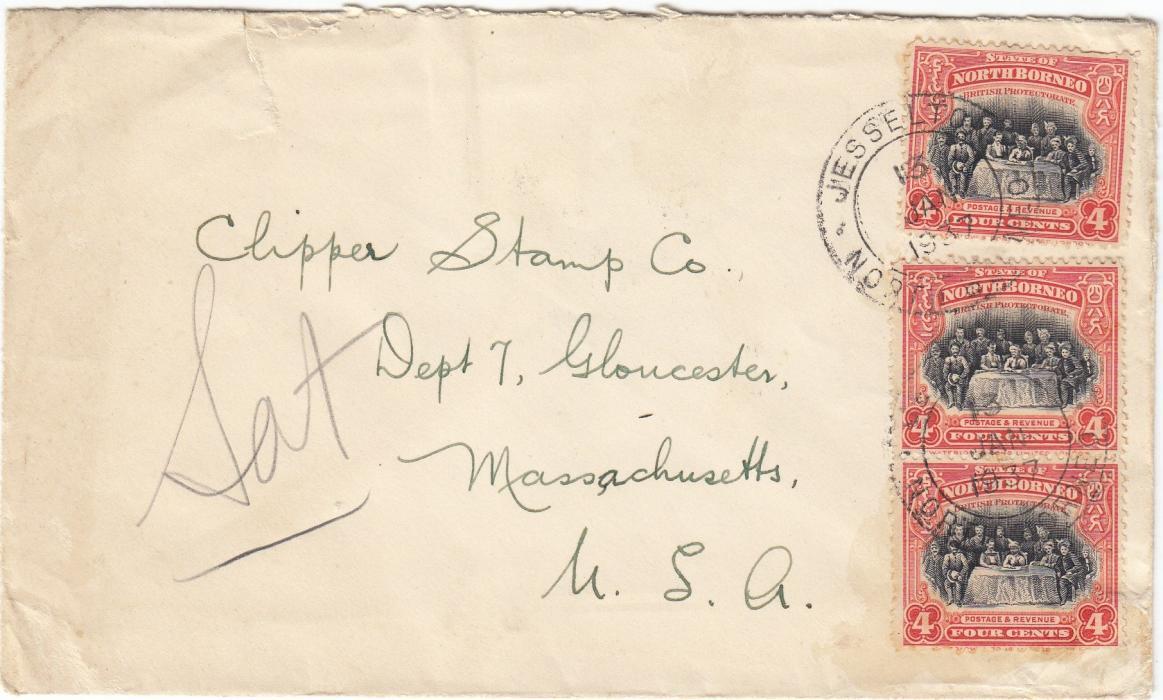 Clipper Stamp Co.,
Dept 7, Gloucester,
Massachusetts,
U. S. A.
Sat
STATE OF
NORTH BORNEO
BRITISH PROTECTORATE
POSTAGE & REVENUE
4 FOUR CENTS 4
JESSELTO
13
JAN
1937
NOR
STATE OF
NORTH BORNEO
BRITISH PROTECTORATE
POSTAGE & REVENUE
4 FOUR CENTS 4
13
JAN
STATE OF
NORTH BORNEO
BRITISH PROTECTORATE
POSTAGE & REVENUE
4 FOUR CENTS 4